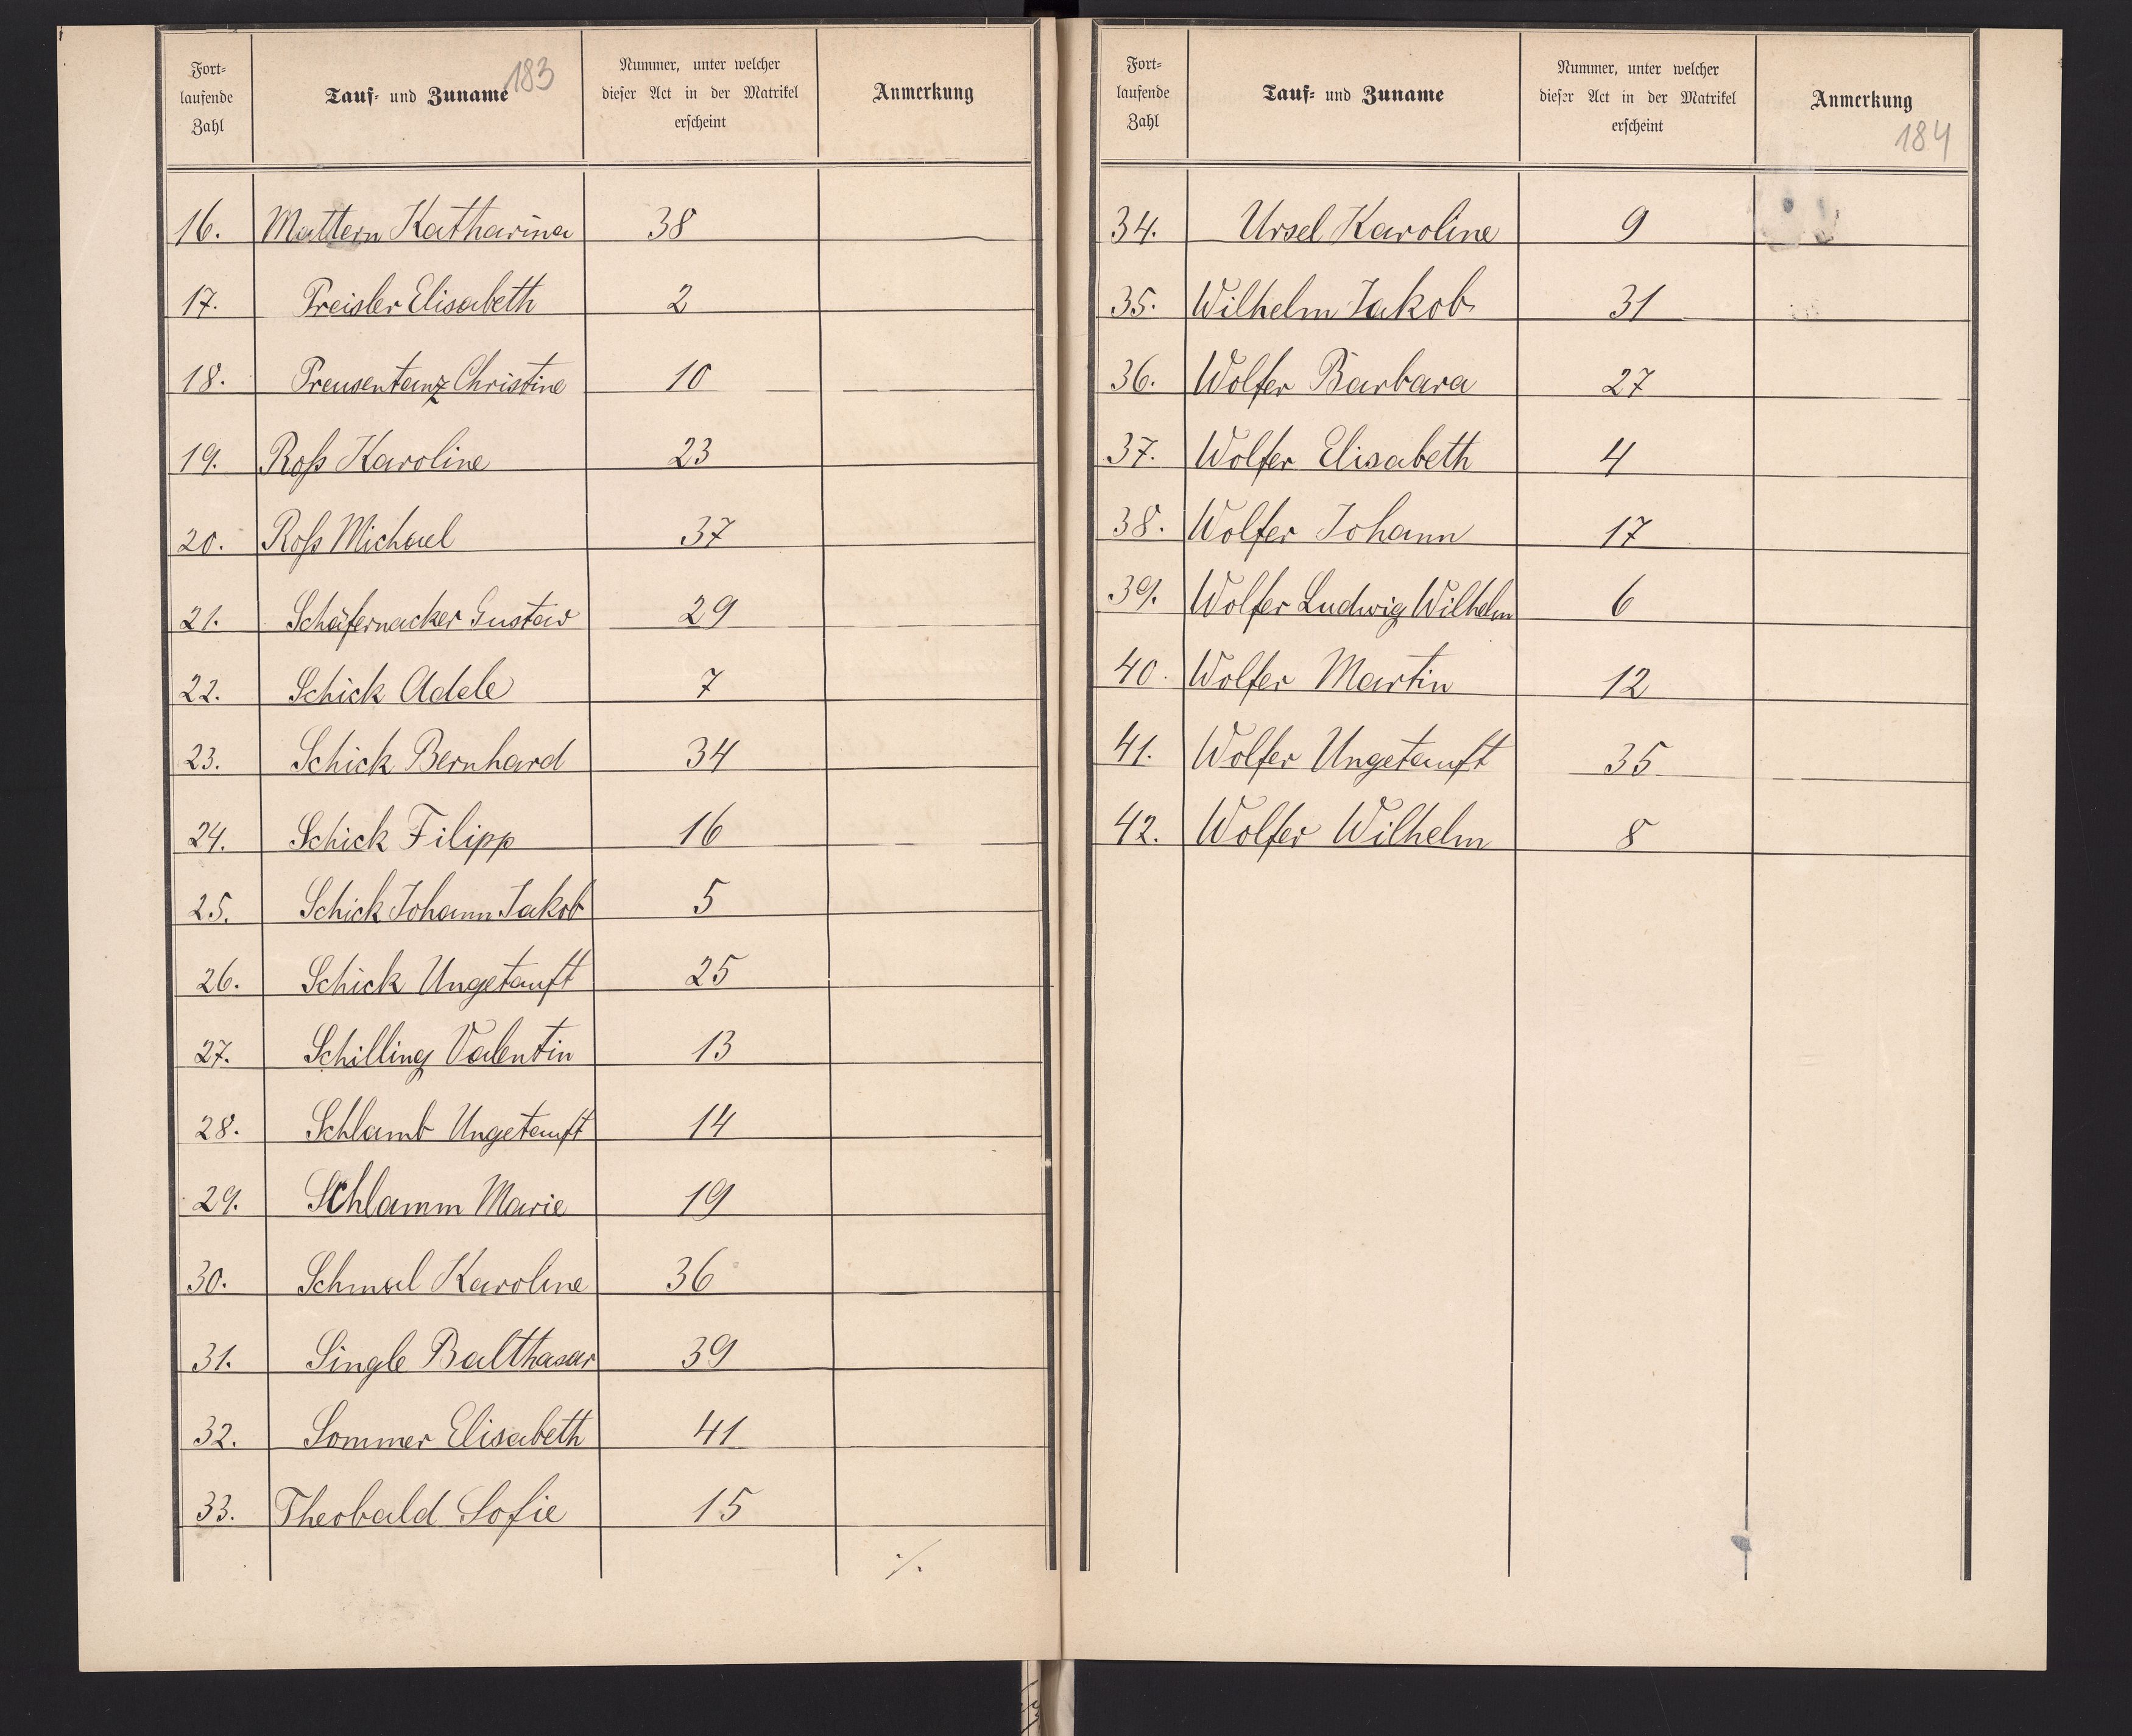 183
Fort=
laufende
Zahl
Tauf= und Zuname
Nummer, unter welcher
dieser Act in der Matrikel
erscheint
Anmerkung
16. Mattern Katharina 38
17. Preisler Elisabeth 2
18. Preusentanz Christine 10
19. Roß Karoline 23
20. Roß Michael 37
21. Schäfernacker Gustav 29
22. Schick Adele 7
23. Schick Bernhard 34
24. Schick Filipp 16
25. Schick Johann Jakob 5
26. Schick Ungetauft 25
27. Schilling Valentin 13
28. Schlamb Ungetauft 14
29. Schlamm Marie 19
30. Schmal Karoline 36
31. Single Balthasar 39
32. Sommer Elisabeth 41
33. Theobald Sofie 15
./.
Fort=
laufende
Zahl
Tauf= und Zuname
Nummer, unter welcher
dieser Act in der Matrikel
erscheint
Anmerkung
184
34. Ursel Karoline 9
35. Wilhelm Jakob 31
36. Wolfer Barbara 27
37. Wolfer Elisabeth 4
38. Wolfer Johann 17
39. Wolfer Ludwig Wilhelm 6
40. Wolfer Martin 12
41. Wolfer Ungetauft 35
42. Wolfer Wilhelm 8